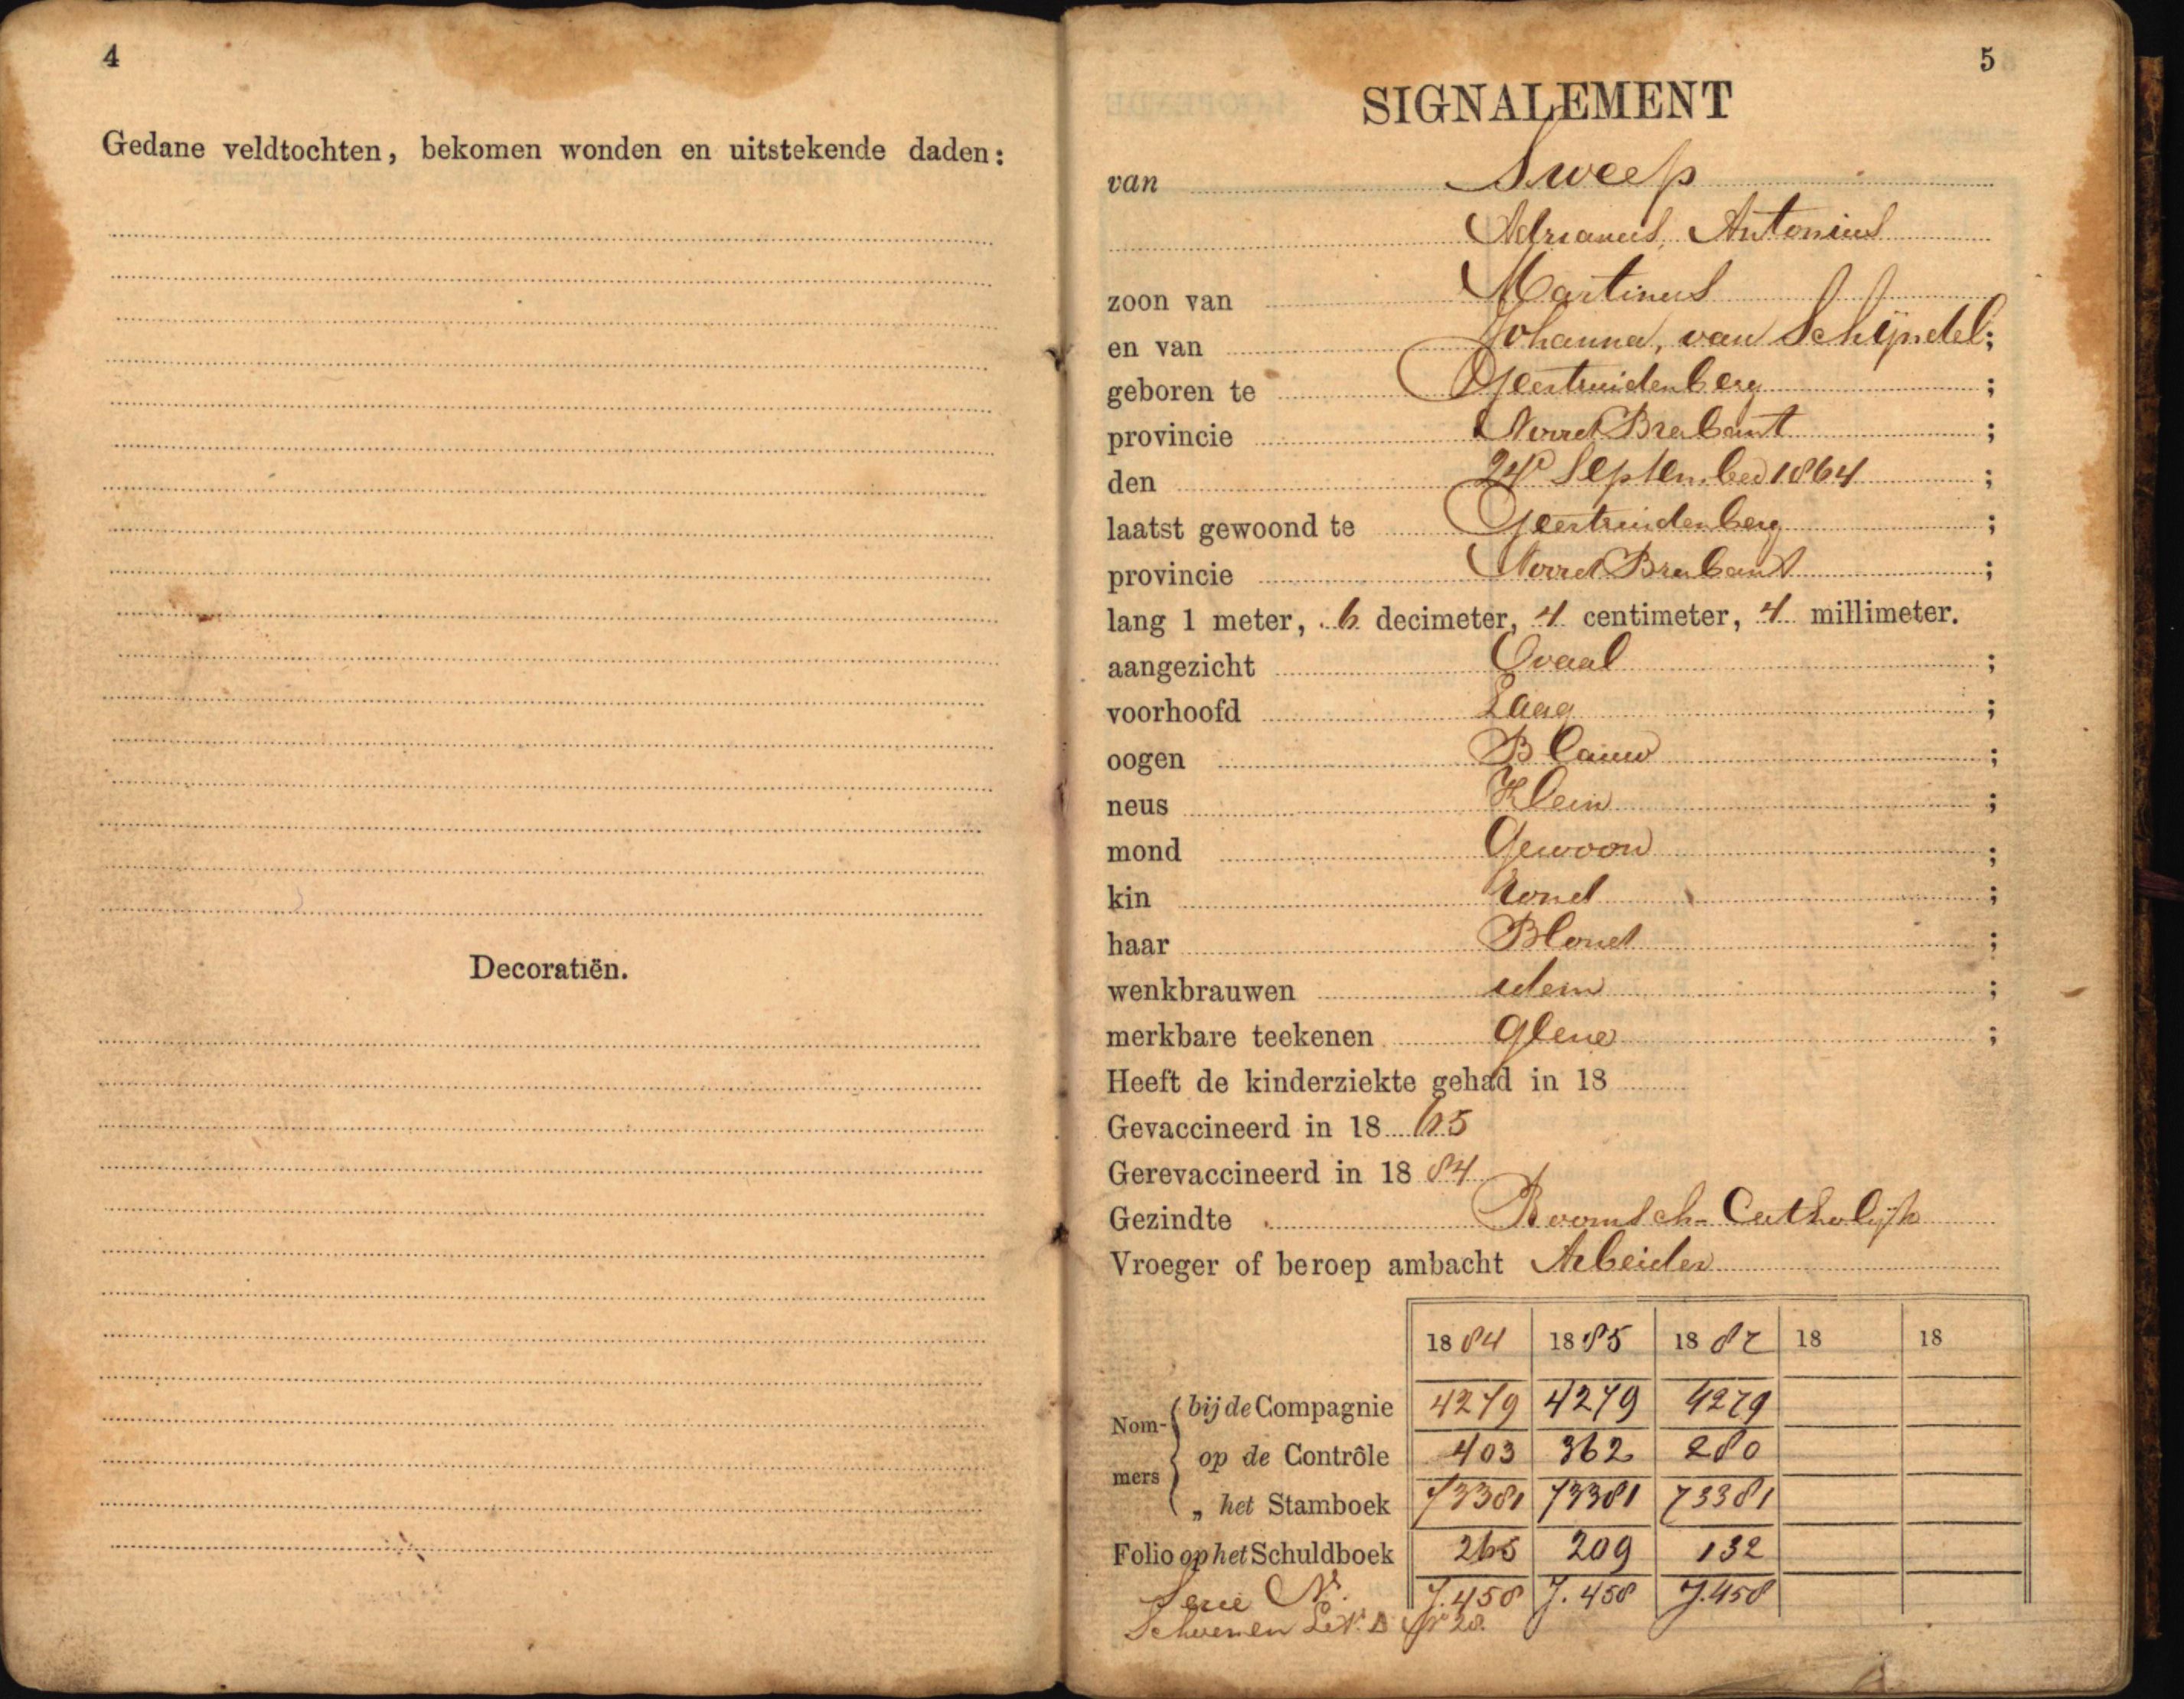 4
Gedane veldtochten, bekomen wonden en uitstekende daden:
Decoratiën.
5
SIGNALEMENT
van Sweep
Adrianus, Antonius
zoon van Martinus
en van Johanna, van Schijndel;
geboren te Geertruidenberg ;
provincie Noord Brabant ;
den 24e September 1864 ;
laatst gewoond te Geertruidenberg ;
provincie Noord Brabant ;
lang 1 meter, 6 decimeter, 4 centimeter, 4 millimeter.
aangezicht Ovaal ;
voorhoofd Laag ;
oogen Blauw ;
neus Klein ;
mond Gewoon ;
kin Rond ;
haar Blond ;
wenkbrauwen idem ;
merkbare teekenen Geene ;
Heeft de kinderziekte gehad in 18
Gevaccineerd in 18 65
Gerevaccineerd in 18 84
Gezindte Roomsch-Catholijk
Vroeger of beroep ambacht Arbeider
18 84 18 85 18 87 18 18
Nom-mers bij de Compagnie 4279 4279 4279
op de Contrôle 403 362 280
„ het Stamboek 73381 73381 73381
Folio op het Schuldboek 265 209 132
Serie N. J.458 J.458 J.458
Schoenen Let. D No 28.